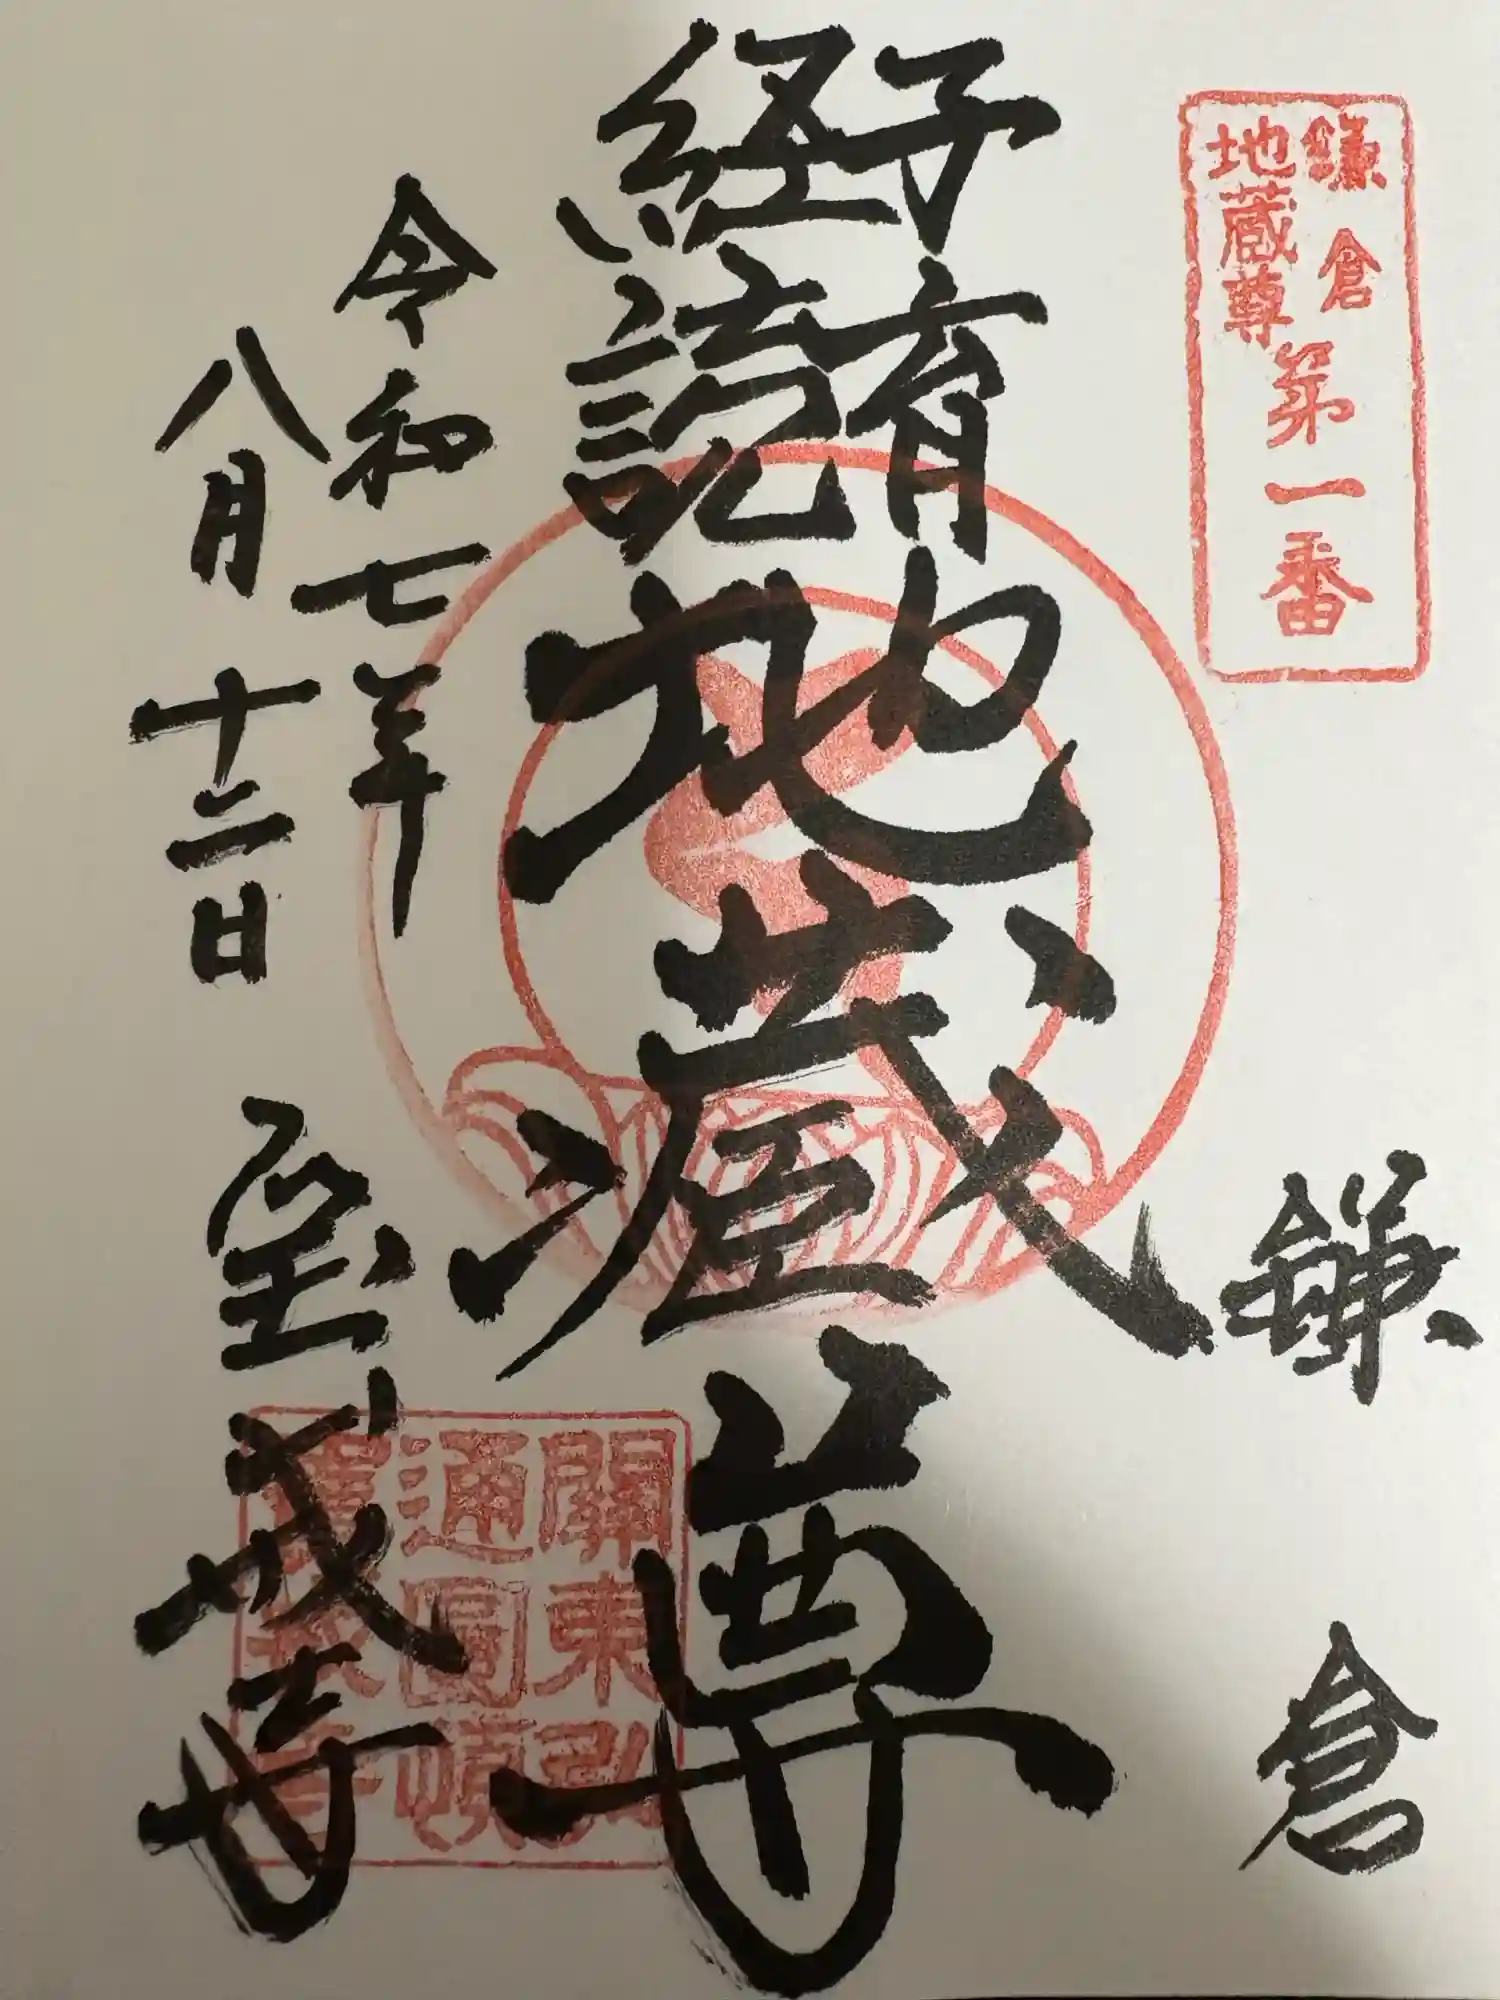 鎌倉
地蔵尊
第一番
鎌倉
子育
経読
地蔵尊
令和七年
八月十二日
宝戒寺
關東弘
通圓頓
寶戒寺